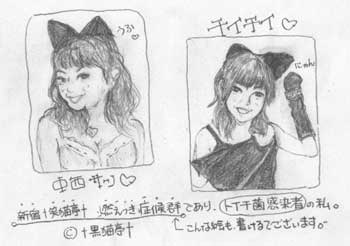 うふ♡
チイチイ♡
にゃん
中西サツ♡
新宿†笑猫亭† 燃えつき症候群であり、トイチ菌感染者の私。
©†黒猫亭† こんな絵も、書けるでございます。